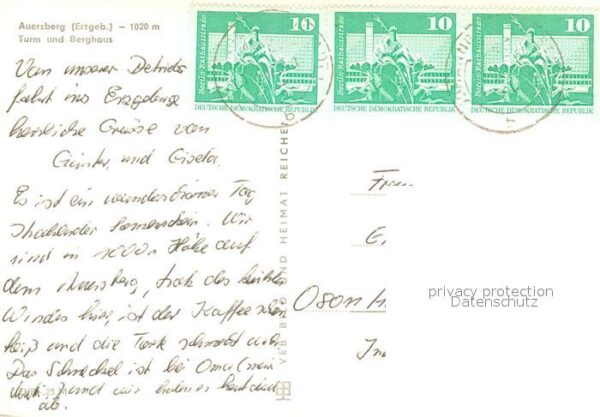 Auersberg (Erzgeb.) – 1020 m
Turm und Berghaus
Von unserer Betriebs
fahrt ins Erzgebirge
herzliche Grüße von
Günter und Gisela.
Es ist ein wunderschöner Tag
Strahlender Sonnenschein. Wir
sind in 1000 m Höhe auf
dem Auersberg, trotz des
Windes hier, ist der Kaffee schön
heiß und die Torte schmeckt
Das Schnecksel ist bei Oma
und wir holen es heut
ab.
VEB BILD UND HEIMAT REICHE
Berlin-Rathausstraße
10
DEUTSCHE DEMOKRATISCHE REPUBLIK
Berlin-Rathausstraße
10
DEUTSCHE DEMOKRATISCHE REPUBLIK
Berlin-Rathausstraße
10
DEUTSCHE DEMOKRATISCHE REPUBLIK
privacy protection
Datenschutz